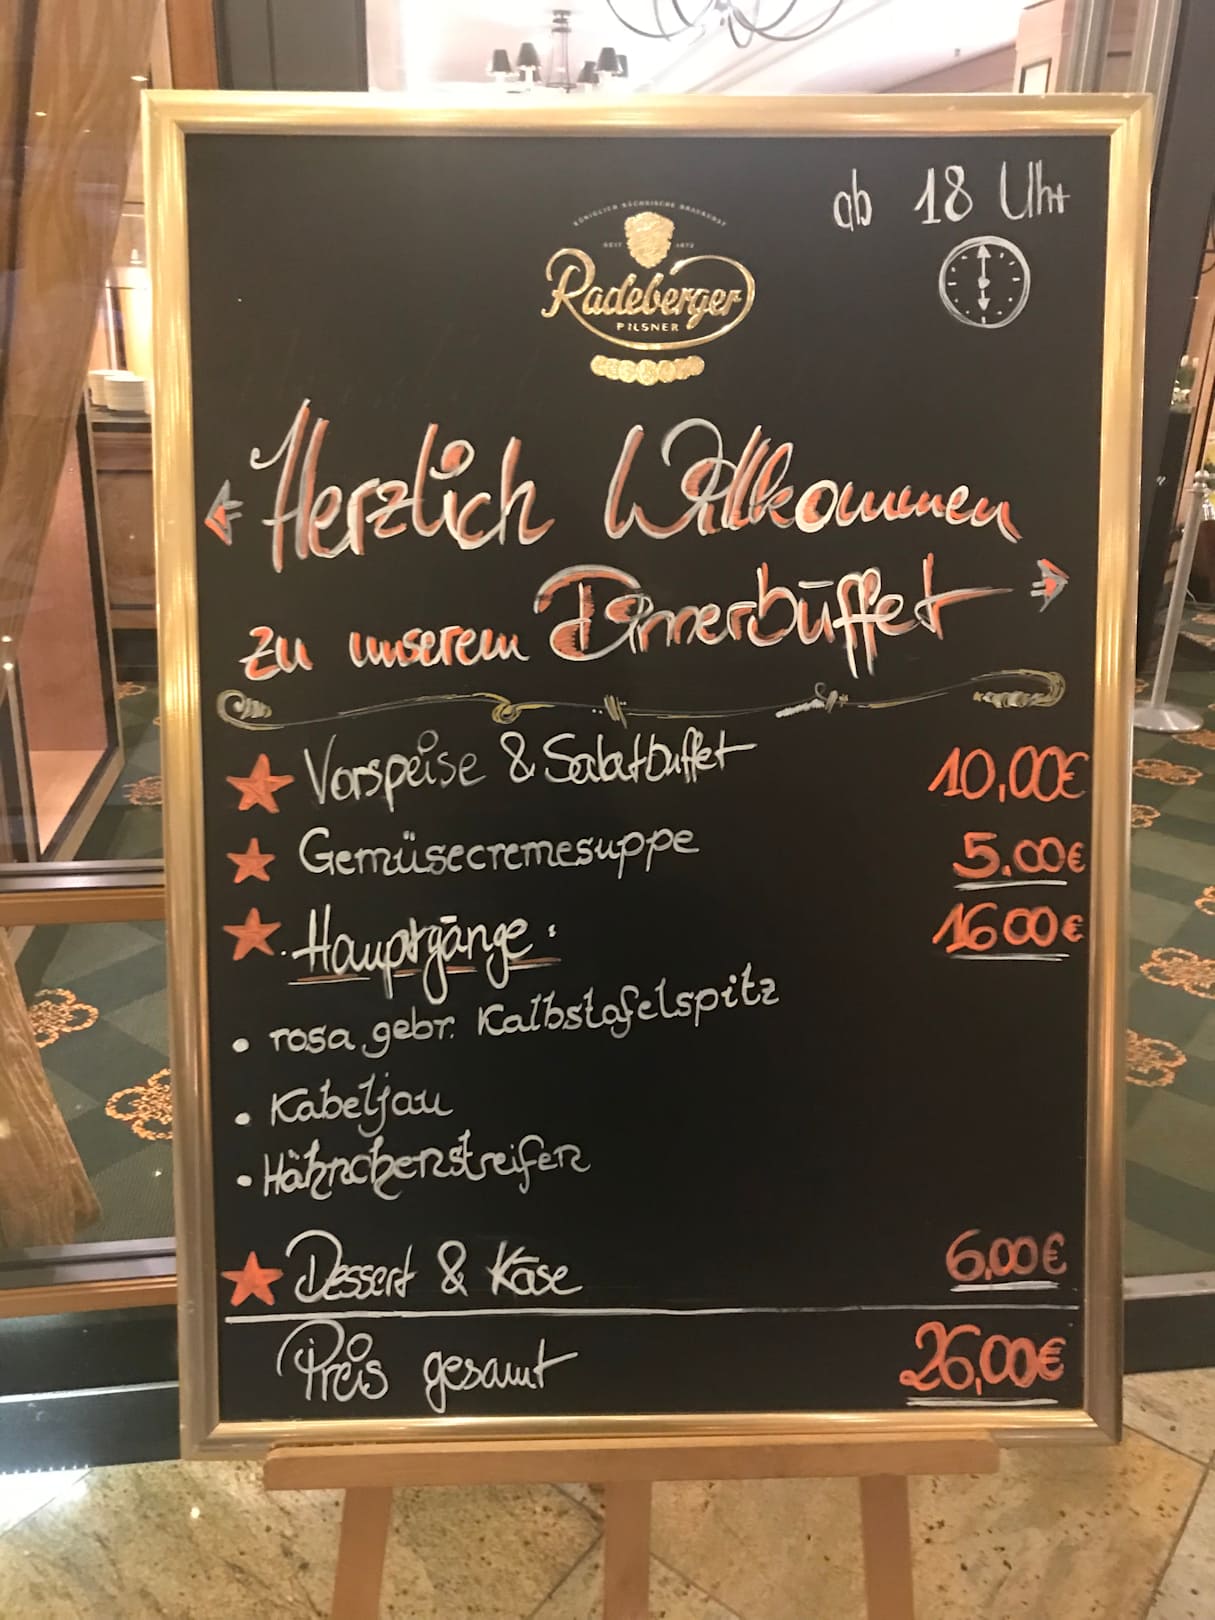 ab 18 Uhr
KÖNIGLICH SÄCHSISCHE BRAUKUNST
SEIT 1872
Radeberger
PILSNER
Herzlich Willkommen
zu unserem Dinnerbüffet
Vorspeise & Salatbuffet 10,00€
Gemüsecremesuppe 5.00€
Hauptgänge: 16 00€
• rosa gebr. Kalbstafelspitz
• Kabeljau
• Hähnchenstreifen
Dessert & Käse 6,00€
Preis gesamt 26,00€